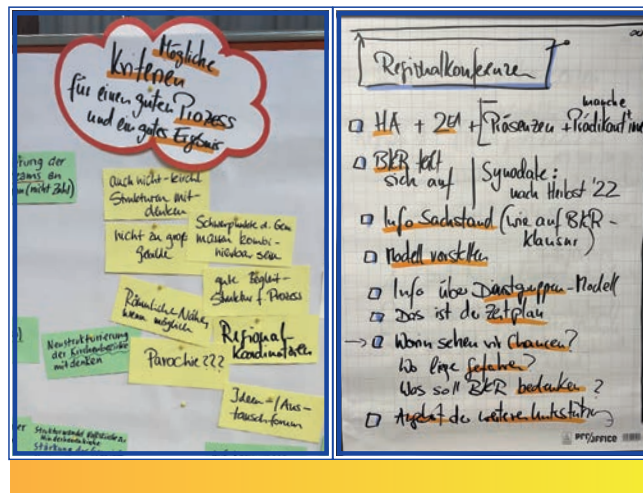 Mögliche
Kriterien
für einen guten Prozess
und ein gutes Ergebnis
fung der
eams en
(nicht Zahl)
auch nicht-kirchl.
Strukturen mit-
denken
nicht zu groß
Schwerpunkte d. Gem
müssen kombi-
nierbar sein
gute Begleit-
struktur f. Prozess
Räumliche Nähe,
wenn möglich
Regional-
koordinatoren
Neustrukturierung
der Kirchenbezirke
mitdenken
Parochie???
Ideen=/Aus-
tauschforum
Strukturwandel
Stärkung
Regionalkonferenzen
manche
HA + 2er + Präsenzen + Prädikant*inn
BKR teilt
sich auf
Synodale:
nach Herbst '22
Info Sachstand (wie auf BKR-
klausur)
Modell vorstellen
Info über Dienstgruppen-Modell
Das ist der Zeitplan
→ Worin sehen wir Chancen?
Wo liegen Gefahren?
Was soll BKR bedenken?
Angebot der weiteren Unterstützung
PRO/OFFICE